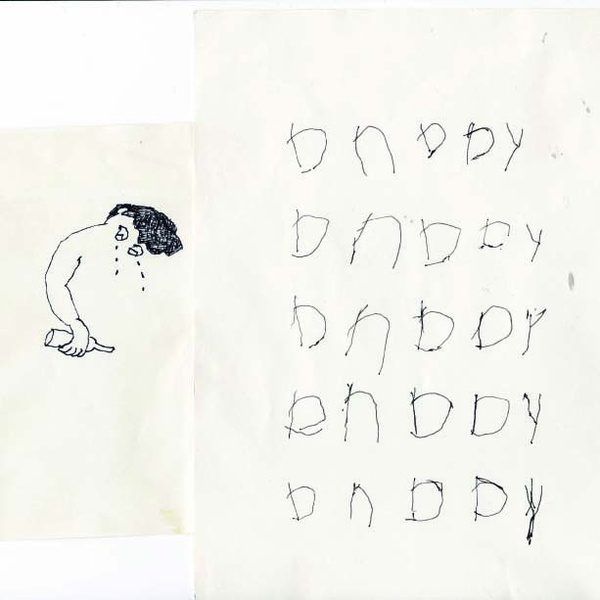 DADDY
DADDY
DADDY
DADDY
DADDY